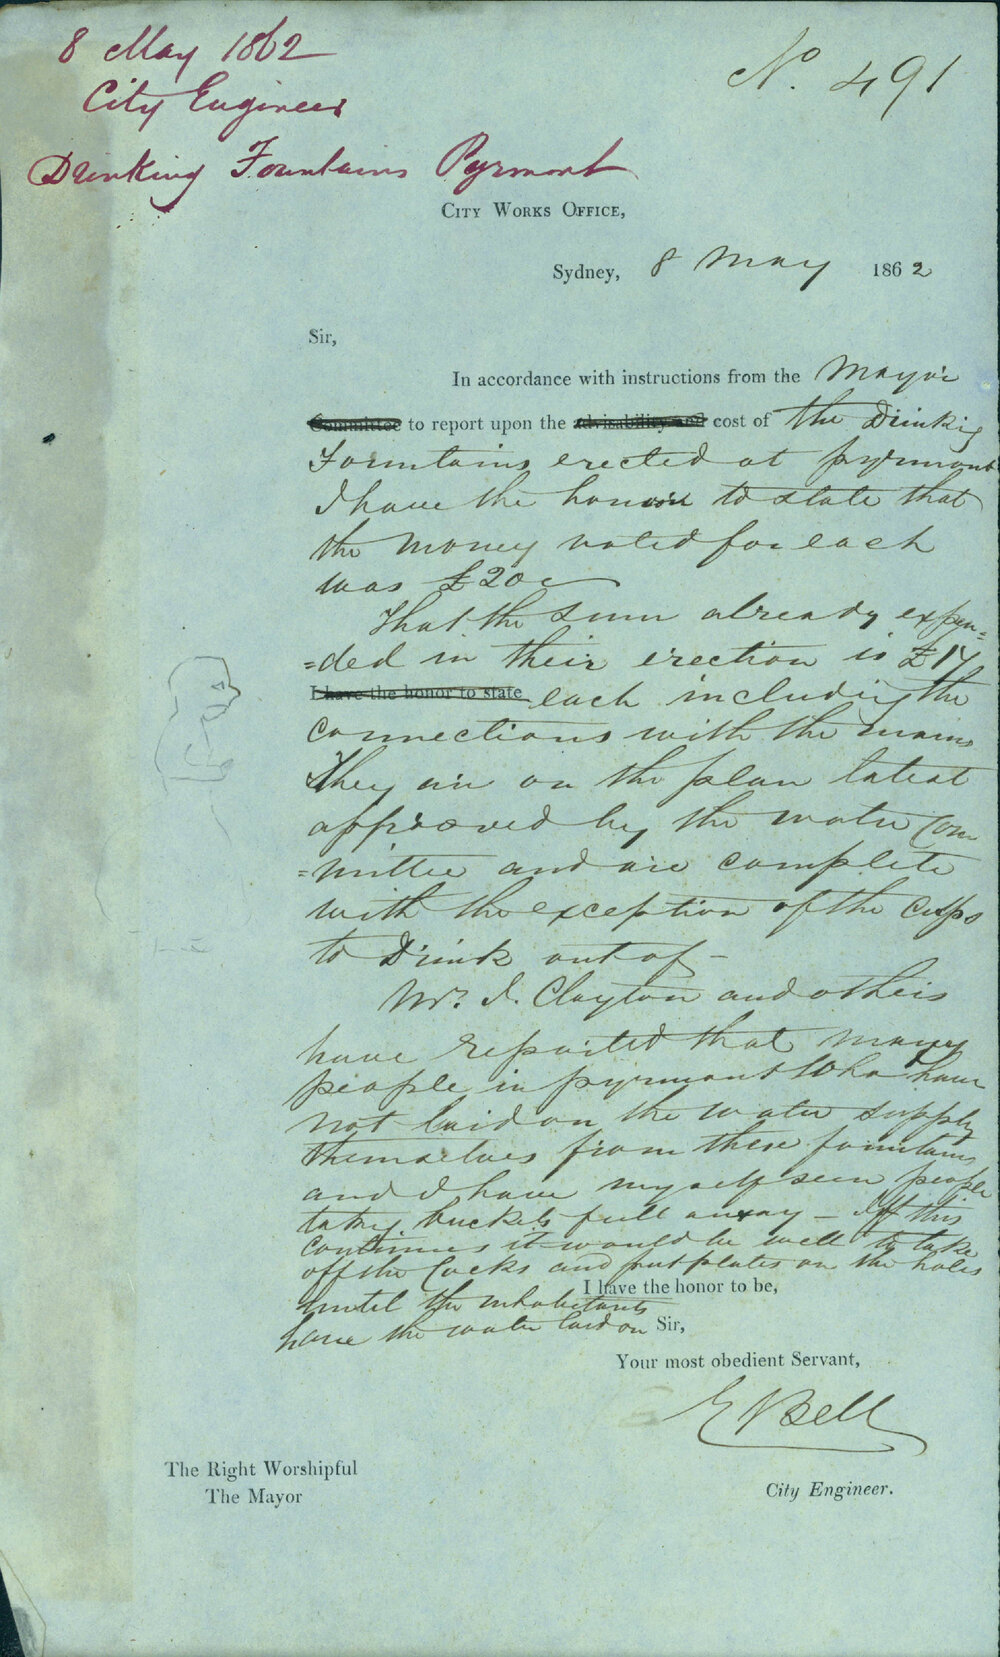 8 May 1862
City Engineer
Drinking Fountains Pyrmont
No. 491
City Works Office,
Sydney, 8 May 1862
Sir,
In accordance with instructions from the Mayor
Committee to report upon the advisability and cost of the Drinking
Fountains erected at pyrmont
I have the honour to state that
the money voted for each
was £20
That the sum already expen=
=ded in their erection is £17
I have the honor to state each including the
connections with the mains
They are on the plan latest
approved by the water Com
=mittee and are complete
with the exception of the cups
to Drink out of –
Mr. I. Clayton and others
have reported that many
people in pyrmont who have
not laid on the water supply
themselves from these fountains
and I have myself seen people
taking buckets full away – If this
continues it would be well to take
off the Cocks and put plates on the holes
until the inhabitants
have the water laid on
I have the honor to be,
Sir,
Your most obedient Servant,
E Bell
City Engineer.
The Right Worshipful
The Mayor